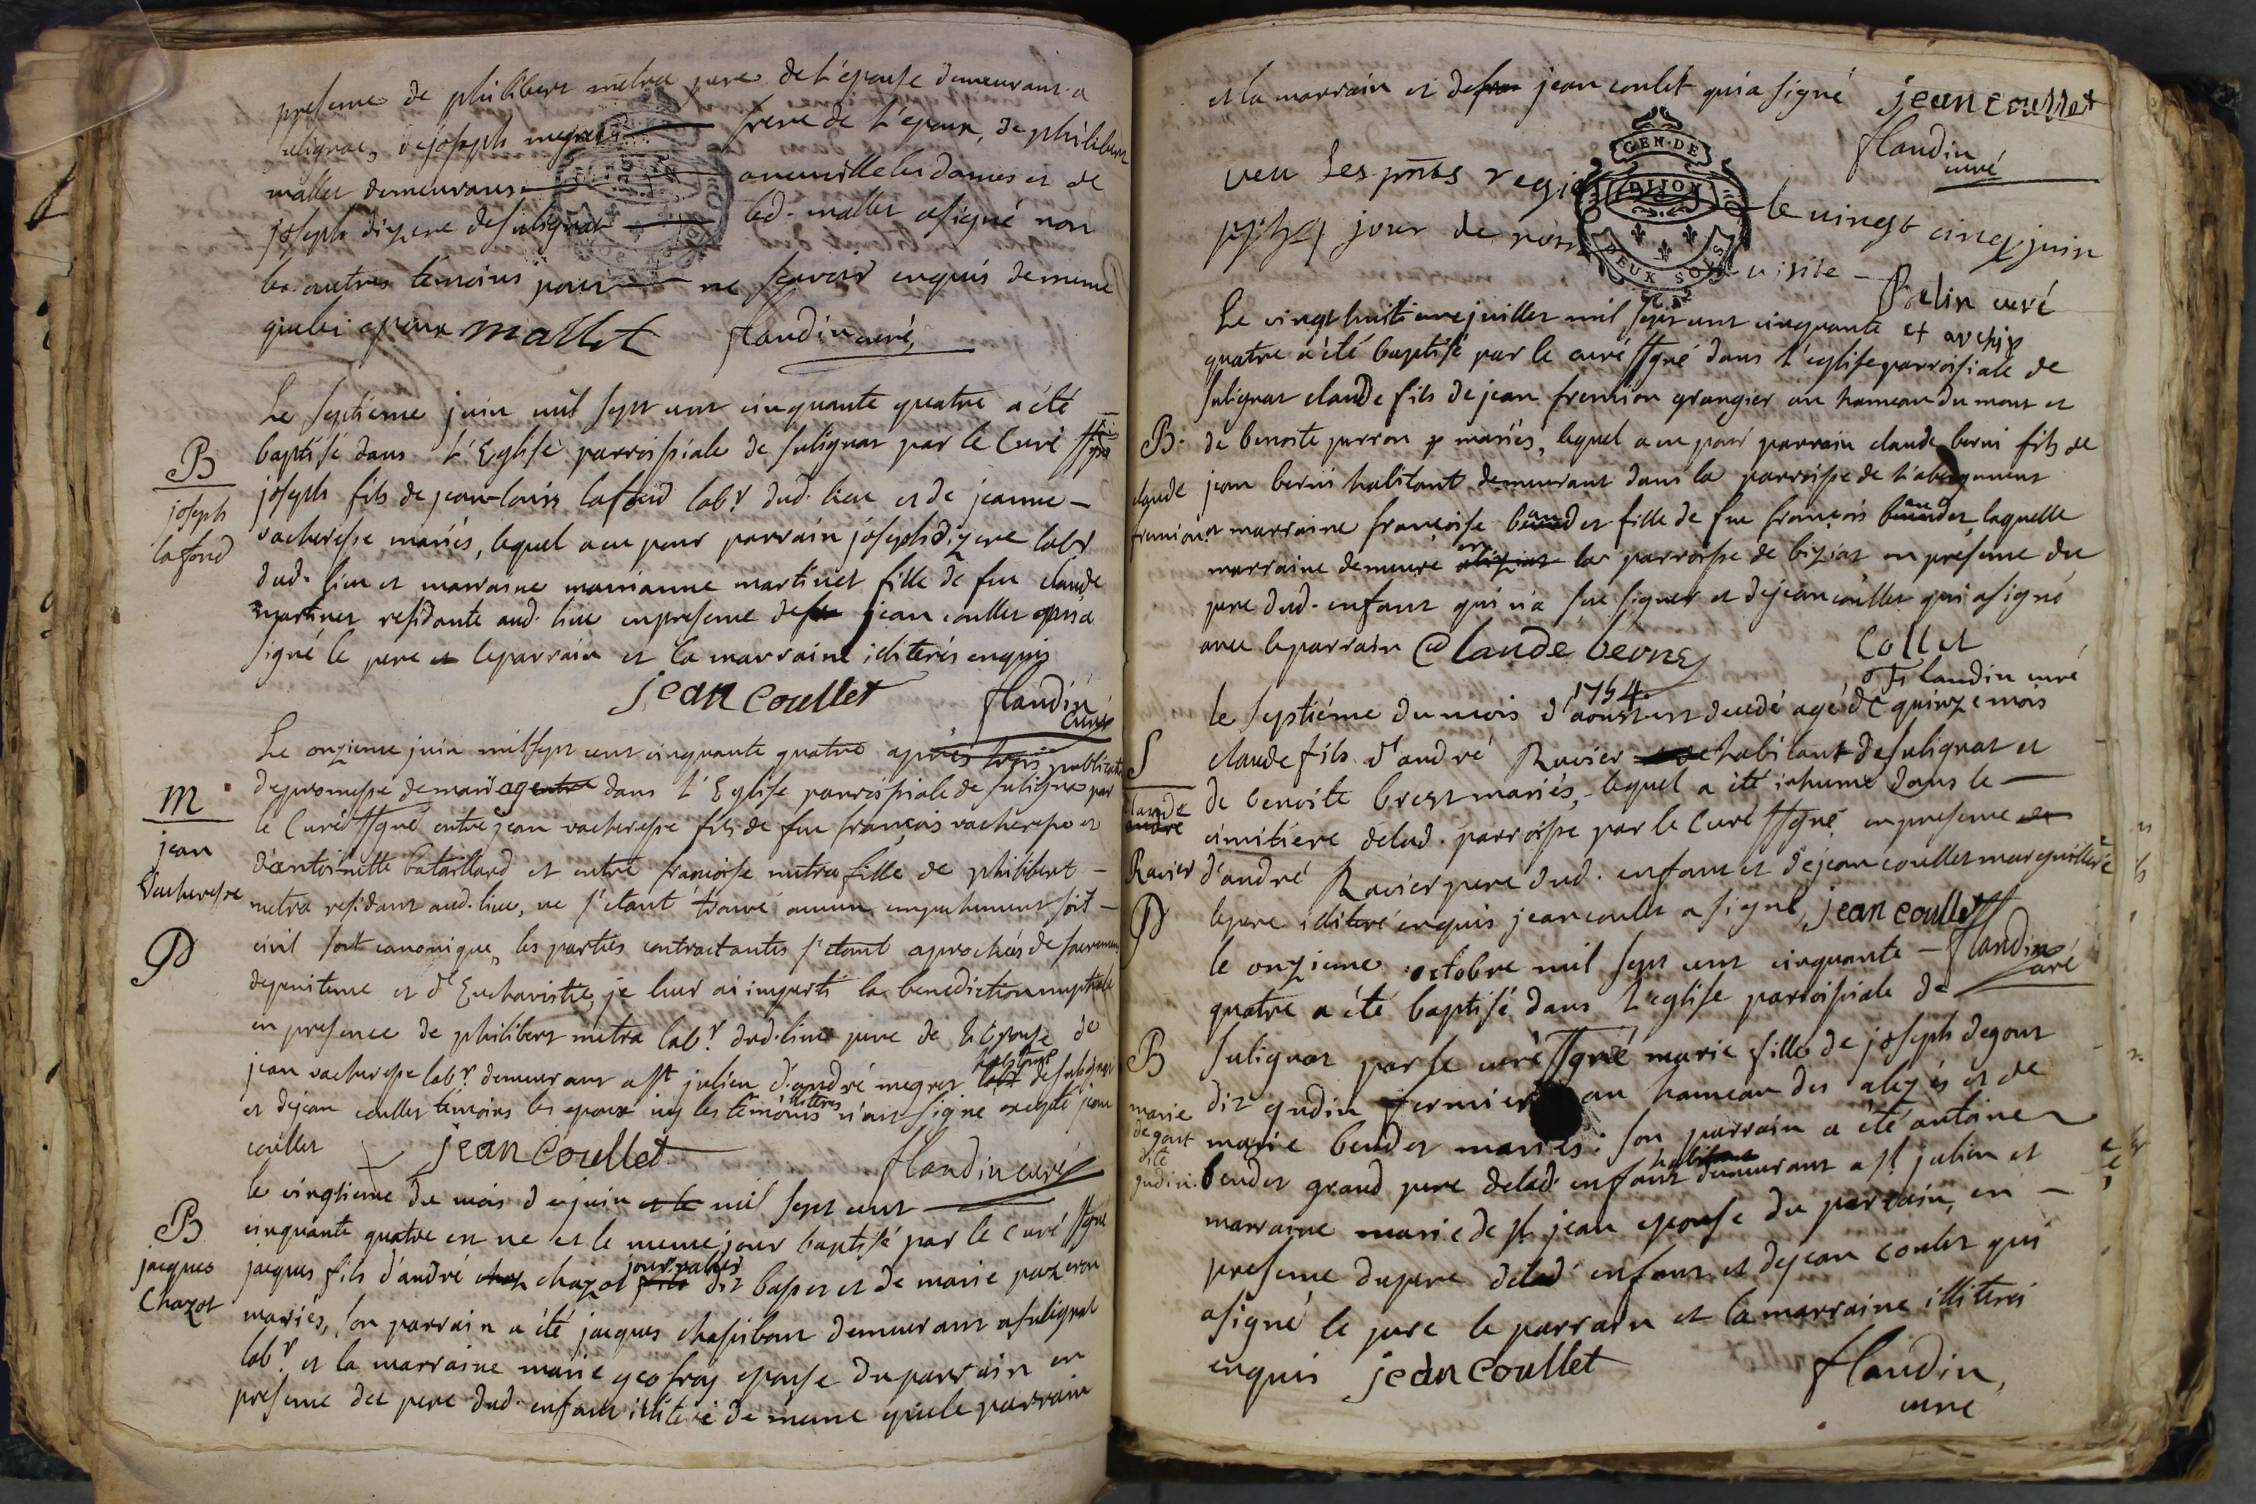 presence de philibert metra pere de l'epouse demeurant a
suligna, de joseph megret frere de l'epoux, de philibert
mallet demeurant a neuville les dames et de
joseph dizere de sulignat led. mallet a signé non
les autres temoins pour ne scavoir enquis de meme
que les epoux mallet flandin curé
Le septieme juin mil sept cent cinquante quatre a été
baptisé dans l'Eglise parroissiale de sulignat par le Curé ssgné
joseph fils de jean-louis lafond labr dud. lieu et de jeanne
vacheresse mariés, lequel a eu pour parrain joseph dizere labr
dud. lieu et marraine marianne martinet fille de feu claude
martinet residante aud. lieu en presence de jean coullet qui a
signé le pere et le parrain et la marraine illiterés enquis
jean Coullet flandin
Curé
B
joseph
lafond
Le onzieme juin mil sept cent cinquante quatre après trois publicat
de promesse de mariage dans l'Eglise parroissiale de suligna par
le Curé ssgné entre jean vacheresse fils de feu françois vacheresse et
d'antoinette bataillard et entre françoise metra fille de philibert
metra residant aud. lieu, ne s'etant trouvé aucun empechement soit
civil soit canonique, les parties contractantes s'etant aprochées de sacremens
de penitence et d'Eucharistie, je leur ai imparti la benediction nuptiale
en presence de philibert metra labr. dud. lieu pere de l'epouse de
jean vacheresse labr. demeurant a st julien d'andré megret habitant de sulignat
et de jean coullet temoins les epoux et les temoins illiterés n'ont signé excepté jean
coullet jean Coullet flandin curé
m
jean
Vacheresse
P
le vingtieme du mois de juin et le mil sept cent
cinquante quatre est né et le meme jour baptisé par le Curé ssgné
jacques fils d'andré chazot journalier dit basset et de marie pazeron
mariés, son parrain a été jacques chassibout demeurant a sulignat
labr. et la marraine marie geofray epouse du parrain en
presence du pere dud. enfant illiteré de meme que le parrain
B
jacques
Chazot
et la marrain et de jean coulet qui a signé jean coullet
flandin
curé
veu les pnts regi le vingt cinq juin
jour de notre visite
Belin curé
et archip
Le vingt huitieme juillet mil sept cent cinquante
quatre a été baptisé par le curé ssgné dans l'eglise parroissiale de
sulignat claude fils de jean fremion grangier au hameau du mont et
de benoite perron mariés, lequel a eu pour parrain claude berni fils de
jean berni habitant demeurant dans la parroisse de l'abergement
et marraine françoise baudet fille de feu françois baudet, laquelle
marraine demeure en la parroisse de biziat en presence du
pere dud. enfant qui n'a sceu signer et de jean coullet qui a signé
avec le parrain Claude berney Collet
Flandin curé
B.
claude
fremion
le septiéme du mois d'aoust 1754 est decedé agé de quinze mois
claude fils d'andré Ravier habitant de sulignat et
de benoite brest mariés, lequel a été inhumé dans le
cimitiere delad. parroisse par le Curé ssgné en presence
d'andré Ravier pere dud. enfant et de jean coullet marguillier
le pere illiteré enquis jean coulet a signé, jean coullet
flandin
curé
S
claude
andré
Ravier
P
le onzieme octobre mil sept cent cinquante
quatre a été baptisé dans l'eglise parroissiale de
sulignat par le curé ssgné marie fille de joseph degout
dit gudin fermier au hameau des alezés et de
marie bendet mariés: son parrain a été antoine
bendet grand pere delad. enfant habitant demeurant a st julien et
marraine marie de st jean epouse du parrain, en
presence du pere delad. enfant et de jean coulet qui
a signé le pere le parrain et la marraine illiterés
enquis jean Coullet flandin,
curé
B
marie
degout
dite
gudin
GEN. DE
DIJON
DEUX SOLS